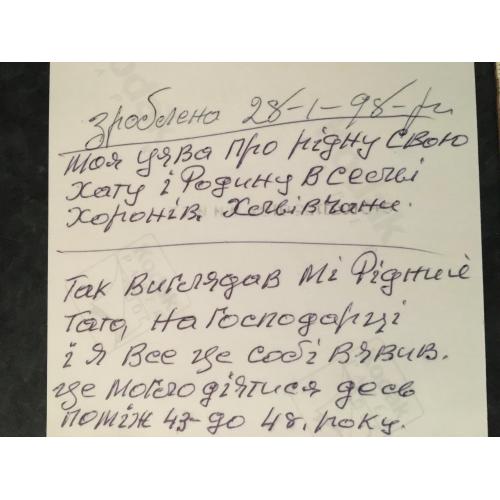 зроблена 28-1-98-р.
Моя уява про рідну Свою
Хату і Родину В селі
Хоронів.
Так Виглядав Мі Рідний
Тато, на Господарці
і я Все це собі Вявив.
це могло діятися десь
поміж 43-до 48. року.